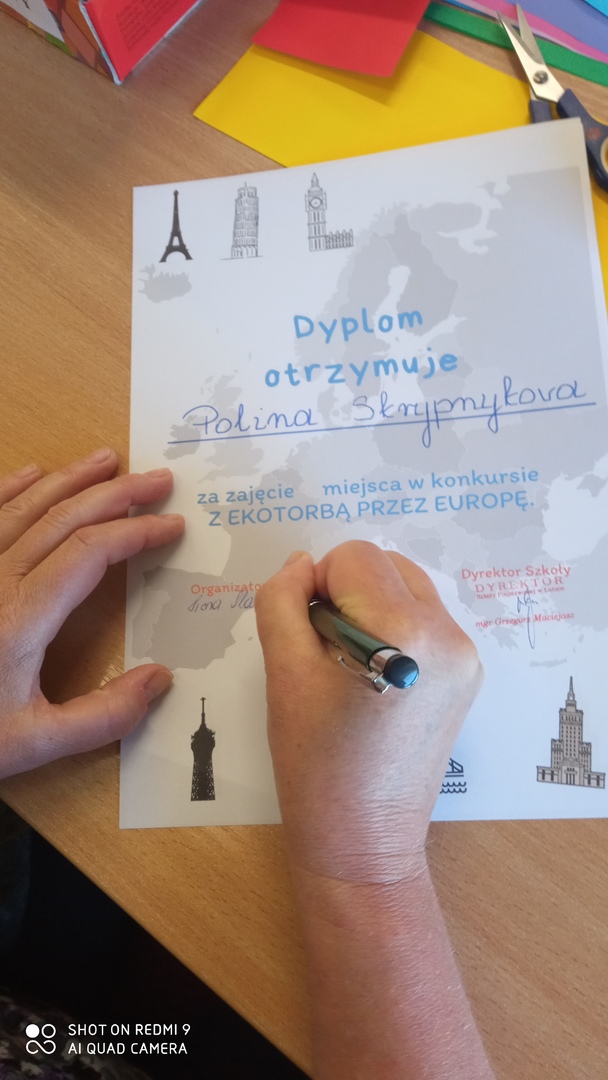 Dyplom
otrzymuje
Polina Skrypnykova
za zajęcie miejsca w konkursie
Z EKOTORBĄ PRZEZ EUROPĘ.
Organizator
Dyrektor Szkoły
DYREKTOR
mgr Grzegorz Maciejasz
SHOT ON REDMI 9
AI QUAD CAMERA